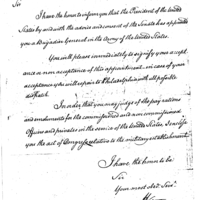 Sir
I have the honor to inform you that the President of the United
States by and with the advice and consent of the Senate has appointed
you a Brigadier General in the Army of the United States.
You will please immediately to signify your accept
ance or non acceptance of this appointment in case of your
acceptance you will repair to Philadelphia with all possible
dispatch.
In order that you may judge of the pay rations
and emoluments for the commissioned and non commissioned
Officers and privates in the service of the United States, I enclose
you the act of Congress relative to the military establishment
I have the honor to be
Sir
Your most obed Serv.